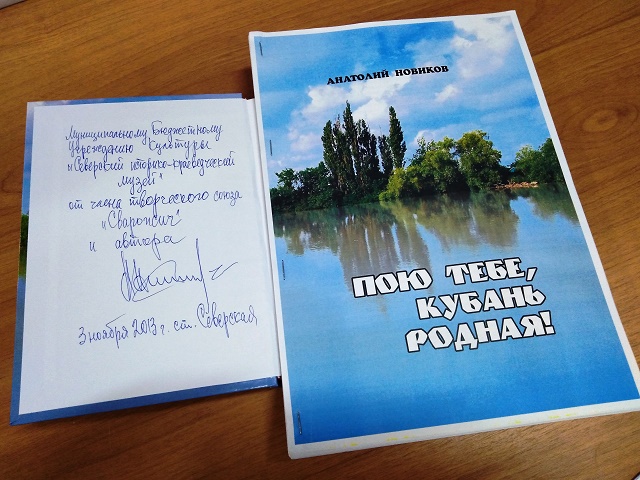 Муниципальному Бюджетному
Учреждению Культуры
"Северский историко-краеведческий
музей"
от члена творческого союза
"Сварожич"
и автора
3 ноября 2013 г. ст. Северская
АНАТОЛИЙ НОВИКОВ
ПОЮ ТЕБЕ,
КУБАНЬ
РОДНАЯ!